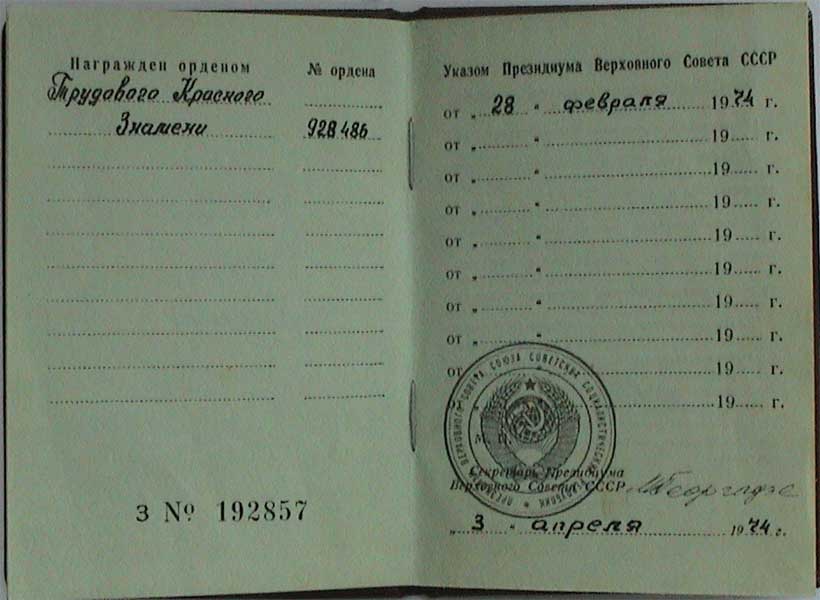 Награжден орденом
№ ордена
Трудового Красного
Знамени
928486
З № 192857
Указом Президиума Верховного Совета СССР
от „ 28 “ февраля 1974 г.
от „ “ 19 г.
от „ “ 19 г.
от „ “ 19 г.
от „ “ 19 г.
от „ “ 19 г.
от „ “ 19 г.
от „ “ 19 г.
от „ “ 19 г.
19 г.
Секретарь Президиума
Верховного Совета СССР
МГеоргадзе
„ 3 “ апреля 1974 г.